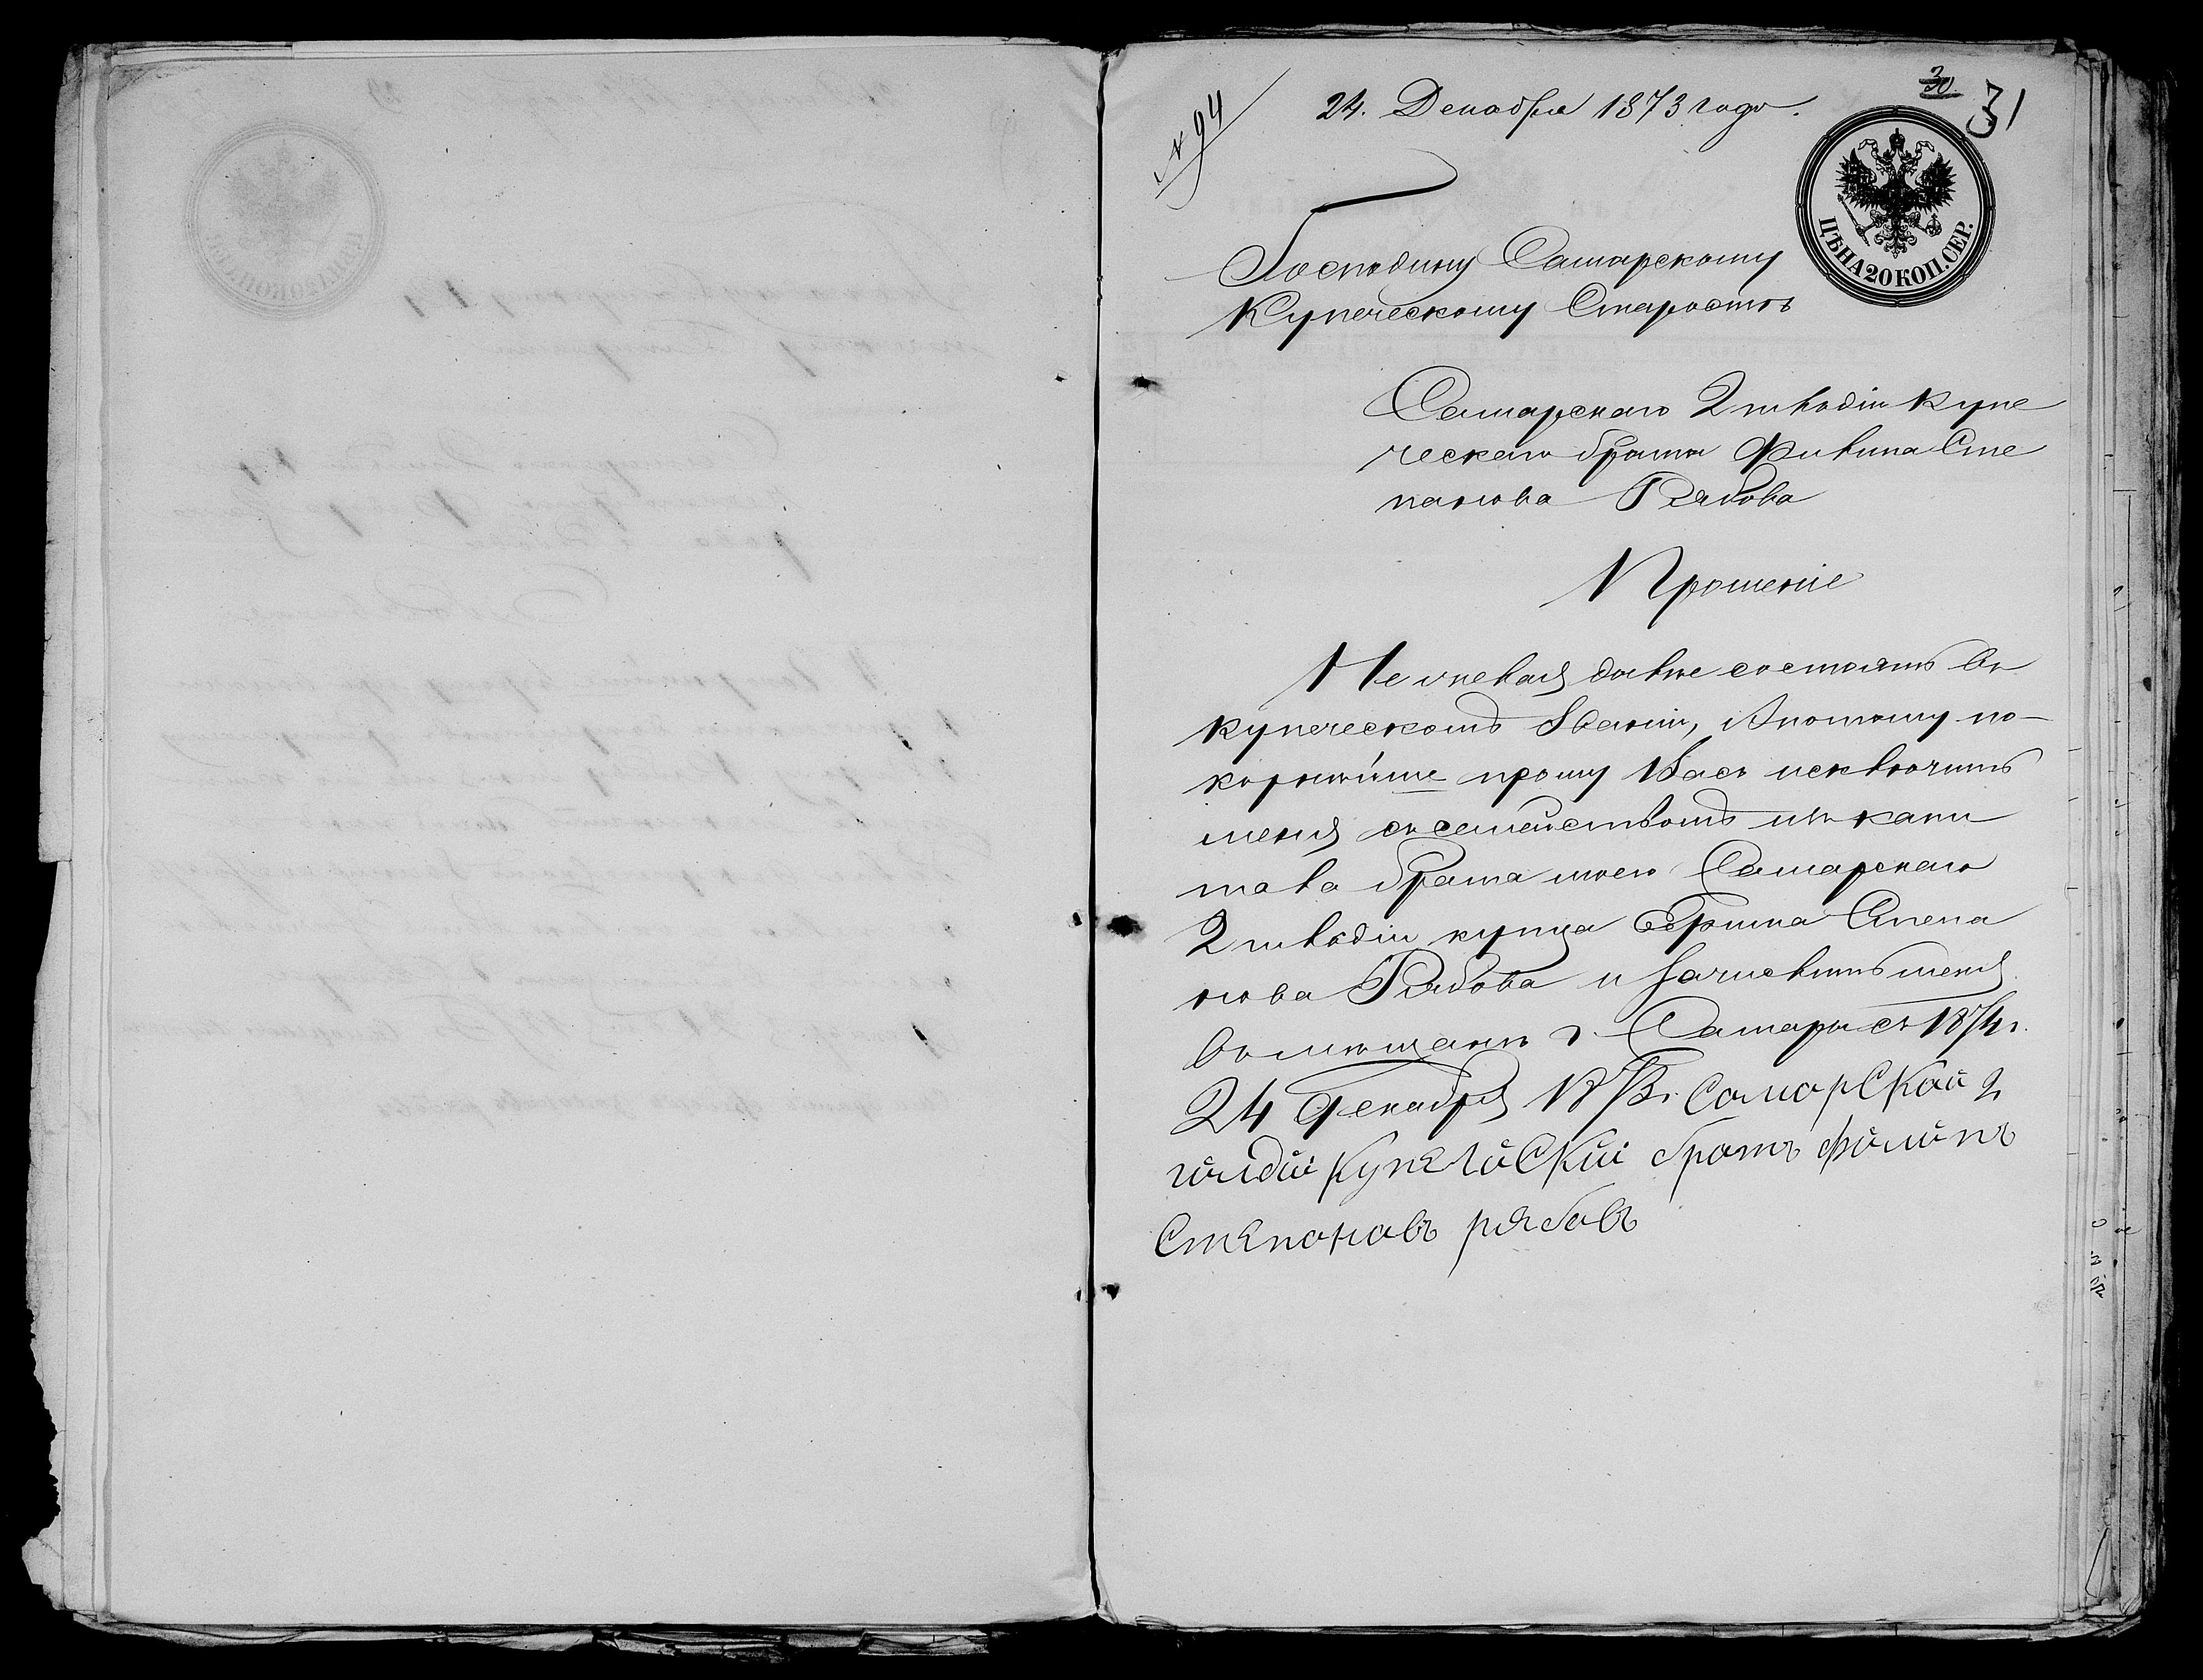 № 94
24. Декабря 1873 года.
30
31
ЦѢНА 20 КОП. СЕР.
Господину Самарскому
Купеческому Старостѣ
Самарскаго 2 гильдіи купе
ческаго брата Филипа Сте
панова Рябова
Прошеніе
Не желая далѣе состоять въ
купеческомъ званіи, А потому по-
корнѣйше прошу Васъ исключить
меня съ семействомъ изъ капи
тала брата моего Самарскаго
2 гильдіи купца Ефима Степа
нова Рябова и зачислить меня
въ мѣщане г. Самары съ 1874 г.
24 Декабря 1873 г. Саморской 2
гилдіи купечискіи братъ филипъ
Степоновъ рябовъ